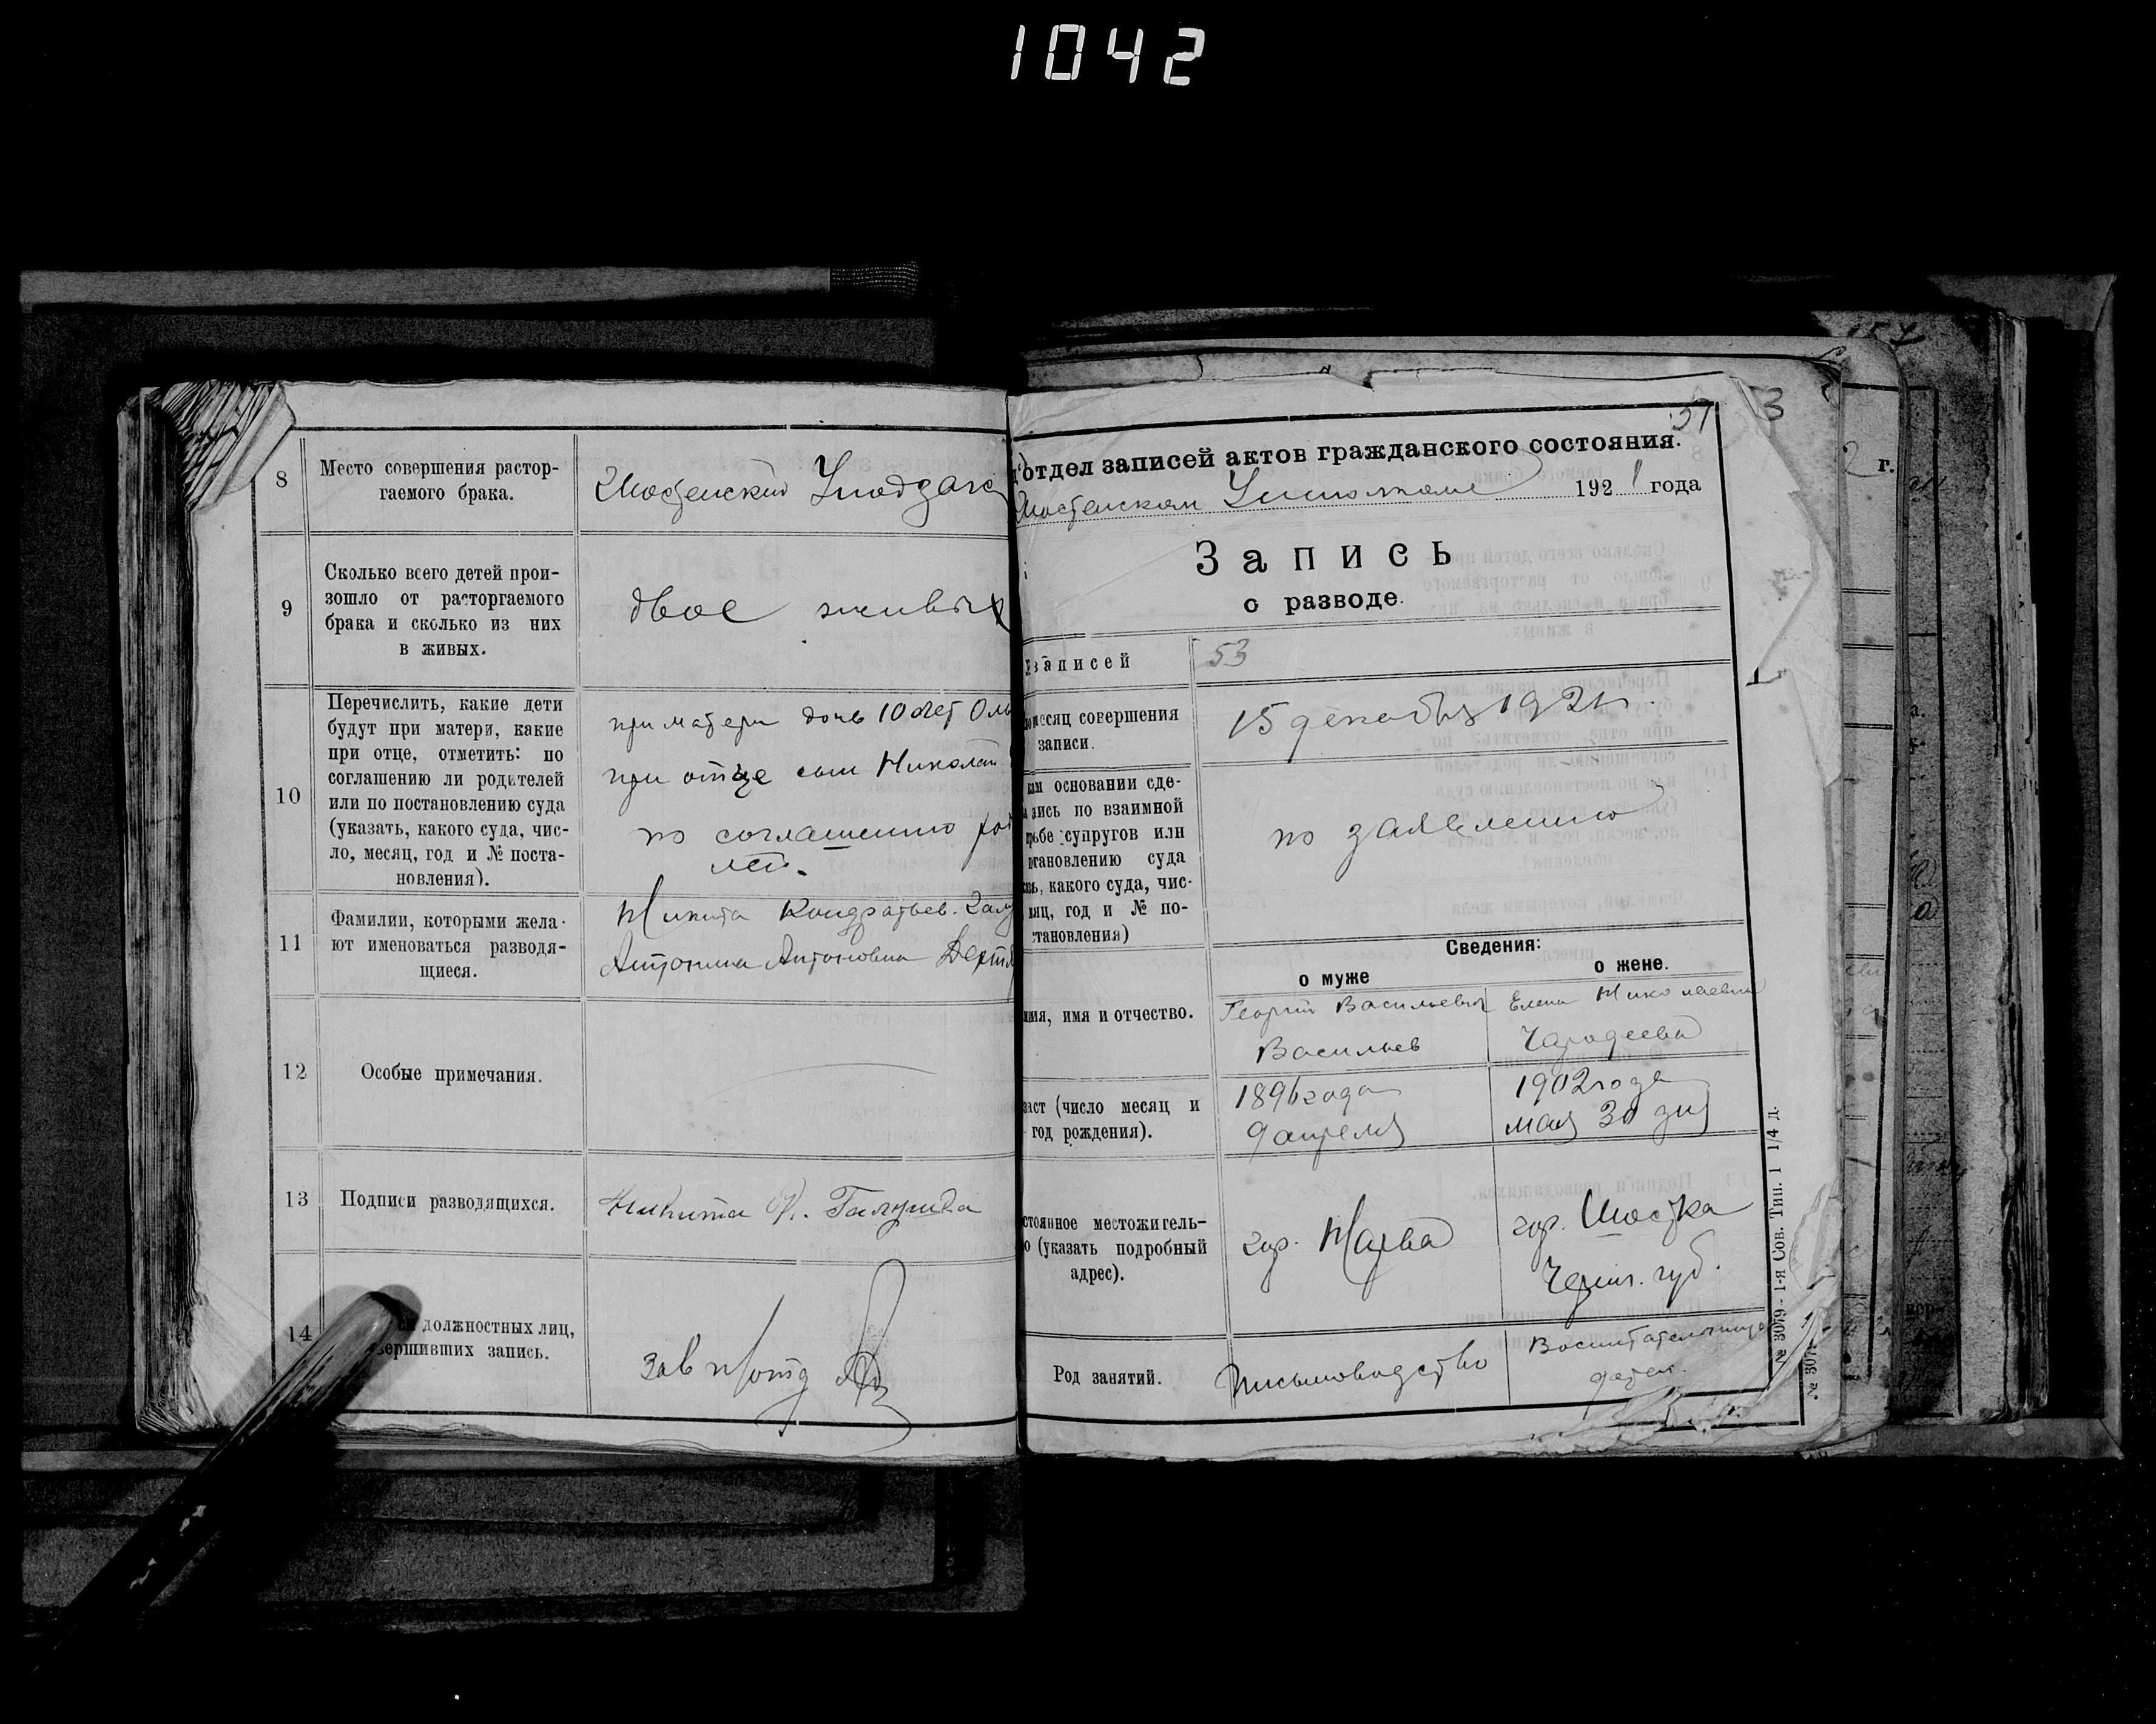 1042
8
Место совершения растор-
гаемого брака.
Шостенский
9
Сколько всего детей прои-
зошло от расторгаемого
брака и сколько из них
в живых.
двое живых
10
Перечислить, какие дети
будут при матери, какие
при отце, отметить: по
соглашению ли родителей
или по постановлению суда
(указать, какого суда, чис-
ло, месяц, год и № поста-
новления).
при матери дочь 10 лет
при отце сын Николай
по соглашению
11
Фамилии, которыми жела-
ют именоваться разводя-
щиеся.
Никита Кондратьев.
Антонина Антоновна
12
Особые примечания.
13
Подписи разводящихся.
Никита
14
должностных лиц,
вершивших запись.
Зав
57
3
отдел записей актов гражданского состояния.
1921 года
Запись
о разводе.
записей
53
месяц совершения
записи.
15 декабря 1921 г.
ком основании сде-
пись по взаимной
сьбе супругов или
становлению суда
ть, какого суда, чис-
яц, год и № по-
становления)
по заявлению
Сведения:
о муже
о жене.
имя и отчество.
Георгий Васильевич
Васильев
Елена Николаевна
Чародеева
раст (число месяц и
год рождения).
1896 года
9 апреля
1902 года
мая 30 дня
стоянное местожитель-
о (указать подробный
адрес).
гор. Нарва
гор. Шостка
Черниг. губ.
Род занятий.
Письмоводство
Воспитательница
детей.
№ 3079 - 1-я Сов. Тип. 1 1/4 д.
г.